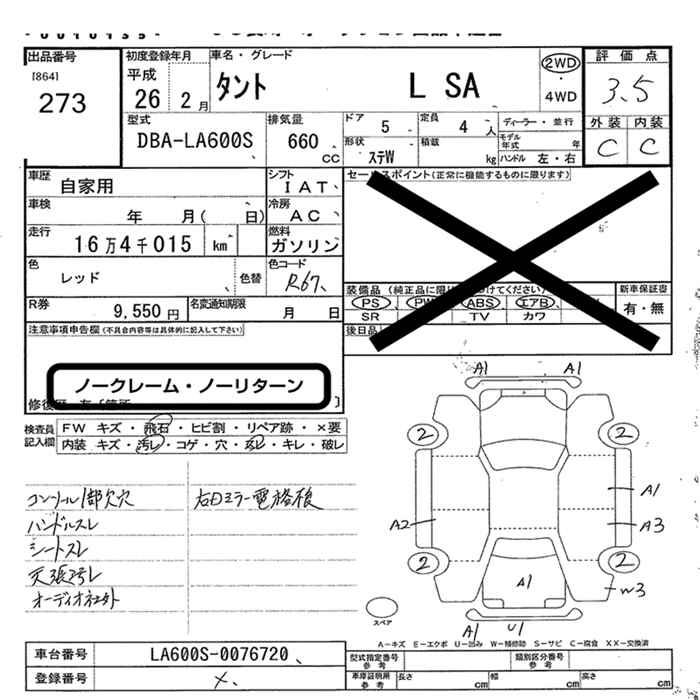 出品番号
[864]
273
初度登録年月
平成
26 2月
車名・グレード
タント L SA
2WD
・
4WD
評価点
3.5
外装 内装
C C
型式
DBA-LA600S
排気量
660 cc
ドア 5
定員 4人
ディーラー・並行
形状 ステW
積載 kg
モデル年式 年
ハンドル 左・右
車歴 自家用
シフト IAT
セールスポイント(正常に機能するものに限ります)
車検 年 月( 日)
冷房 AC
走行 16万4千015 km
燃料 ガソリン
色 レッド
色替
色コード R67
装備品(純正品に限り
けてください)
新車保証書
PS PW ABS エアB
有・無
SR TV カワ
R券 9,550円
名変通知期限 月 日
後日品
注意事項申告欄(不具合内容等は具体的に記入して下さい)
ノークレーム・ノーリターン
検査員記入欄
FW キズ・飛石・ヒビ割・リペア跡・×要
内装 キズ・汚レ・コゲ・穴・スレ・キレ・破レ
コンソール1部欠穴
右Dミラー電格後
ハンドルスレ
シートスレ
オーディオ社外
A1 A1
2 2
A1
A2 A3
2 2
A1
W3
スペア
A1 U1
A-キズ E-エクボ U-凹み W-補修跡 S-サビ C-腐食 XX-交換済
車台番号 LA600S-0076720
型式指定番号 参考
類別区分番号 参考
登録番号
車庫証明用 参考
長さ cm 幅 cm 高さ cm